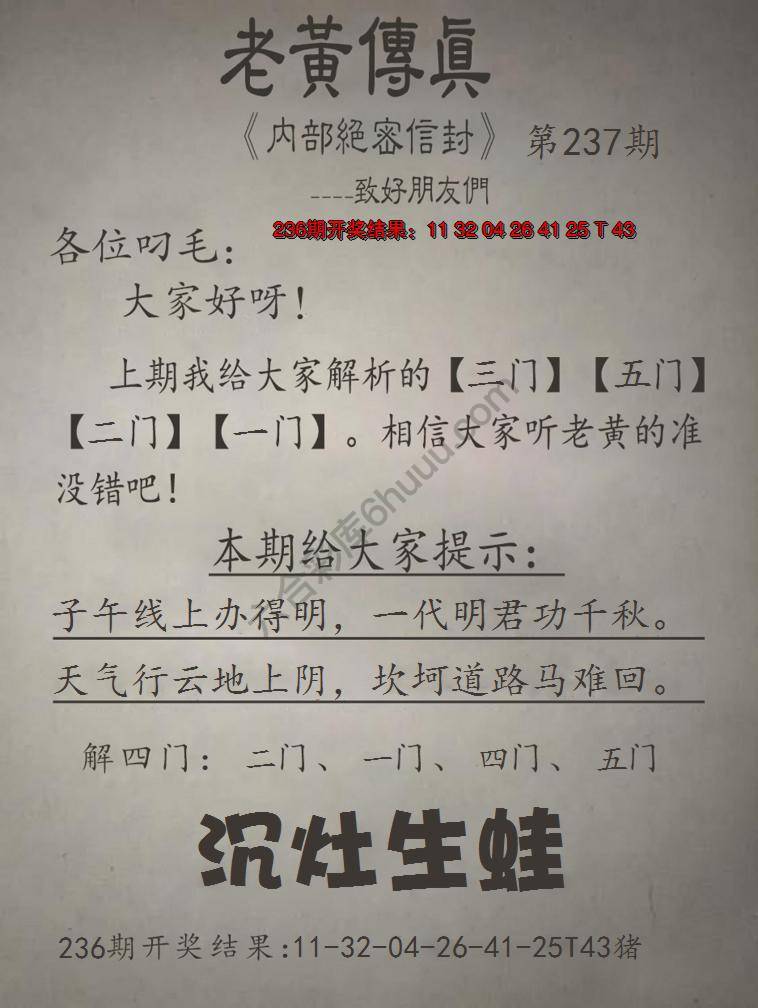 老黃傳真
《内部絕密信封》 第237期
----致好朋友們
236期开奖结果：11 32 04 26 41 25 T 43
各位叼毛：
大家好呀！
上期我给大家解析的【三门】【五门】
【二门】【一门】。相信大家听老黄的准
没错吧！
六合彩库6huuu.com
本期给大家提示：
子午线上办得明，一代明君功千秋。
天气行云地上阴，坎坷道路马难回。
解四门： 二门、 一门、 四门、 五门
沉灶生蛙
236期开奖结果:11-32-04-26-41-25T43猪